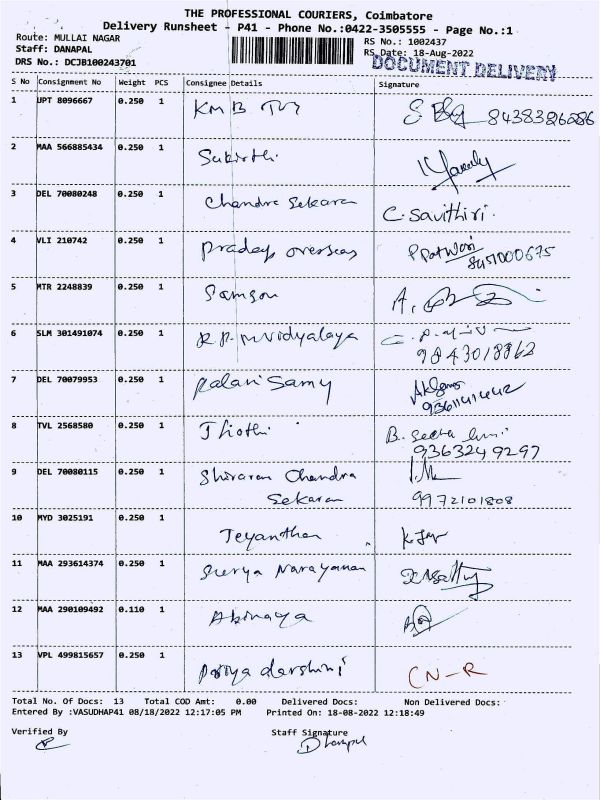 THE PROFESSIONAL COURIERS, Coimbatore
Delivery Runsheet - P41 - Phone No.:0422-3505555 - Page No.:1
Route: MULLAI NAGAR
RS No.: 1002437
Staff: DANAPAL
RS Date: 18-Aug-2022
DRS No.: DCJB100243701
DOCUMENT DELIVERY
S No Consignment No Weight PCS Consignee Details Signature
1 UPT 8096667 0.250 1 KMB TVS 8438386286
2 MAA 566885434 0.250 1 Sukirthi
3 DEL 70080248 0.250 1 Chandra Sekaran C. Savithiri.
4 VLI 210742 0.250 1 Pradeep overseas
8451000675
5 MTR 2248839 0.250 1 Samson
6 SLM 301491074 0.250 1 R.P.M Vidyalaya
9843018862
7 DEL 70079953 0.250 1 Palani Samy
8 TVL 2568580 0.250 1 Jhothi B.
9363249297
9 DEL 70080115 0.250 1 Shivaram Chandra
Sekaran 9972101808
10 MYD 3025191 0.250 1 Jeyanthan
11 MAA 293614374 0.250 1 Surya Narayanan
12 MAA 290109492 0.110 1 Abinaya
13 VPL 499815657 0.250 1 Priya darshini CN-R
Total No. Of Docs: 13 Total COD Amt: 0.00 Delivered Docs: Non Delivered Docs:
Entered By :VASUDHAP41 08/18/2022 12:17:05 PM Printed On: 18-08-2022 12:18:49
Verified By Staff Signature